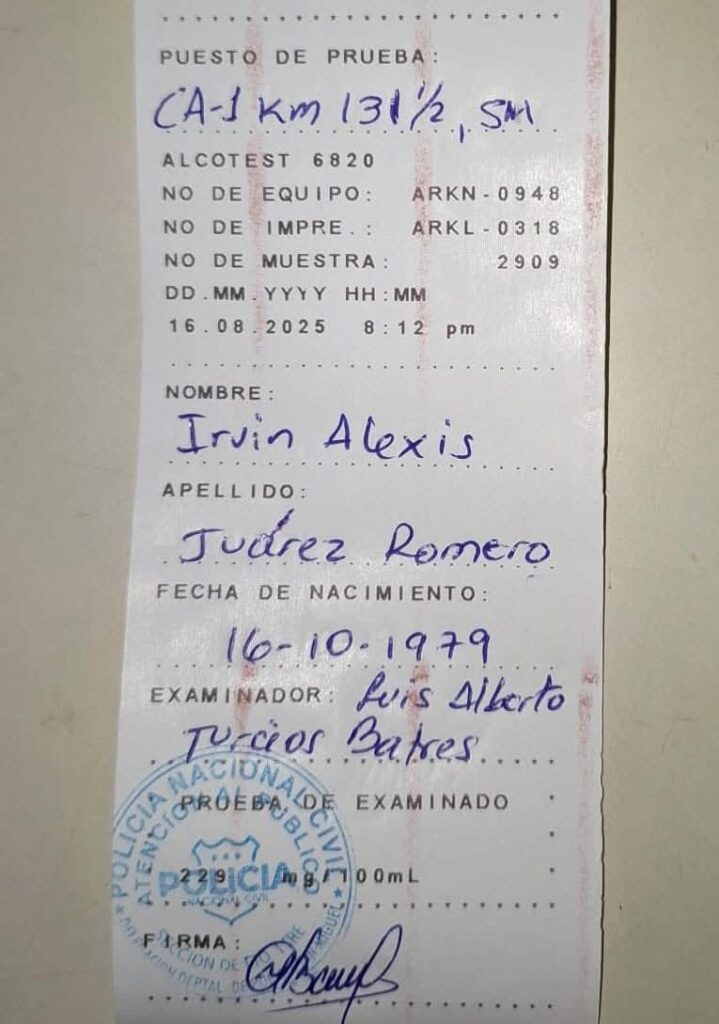 PUESTO DE PRUEBA:
CA-1 Km 131 1/2, SM
ALCOTEST 6820
NO DE EQUIPO: ARKN-0948
NO DE IMPRE.: ARKL-0318
NO DE MUESTRA: 2909
DD.MM.YYYY HH:MM
16.08.2025 8:12 pm
NOMBRE:
Irvin Alexis
APELLIDO:
Juárez Romero
FECHA DE NACIMIENTO:
16-10-1979
EXAMINADOR: Luis Alberto
Turcios Batres
PRUEBA DE EXAMINADO
229 mg/100mL
FIRMA:
POLICIA NACIONAL CIVIL
ATENCION AL PUBLICO
POLICIA
NACIONAL CIVIL
SECCION DE